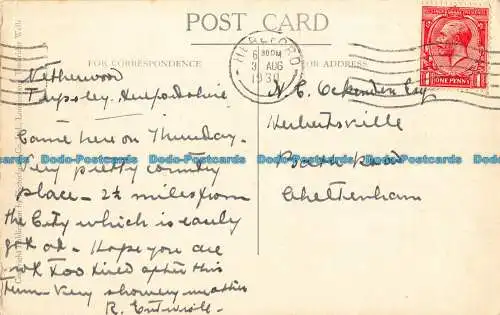 POST CARD
FOR CORRESPONDENCE
FOR ADDRESS.
HEREFORD
3 AUG
1930
ONE PENNY
Netherwood
Tupsley. Herefordshire
Came here on Thursday.
Very pretty country
place - 2½ miles from
the City which is easily
got at. Hope you are
not too tired after this
Term - Very showery weather
R.
N. C. Ockenden Esq
Herbertsville
Bath Road
Cheltenham
Dodo-Postcards Dodo-Postcards Dodo-Postcards Dodo-Postcards